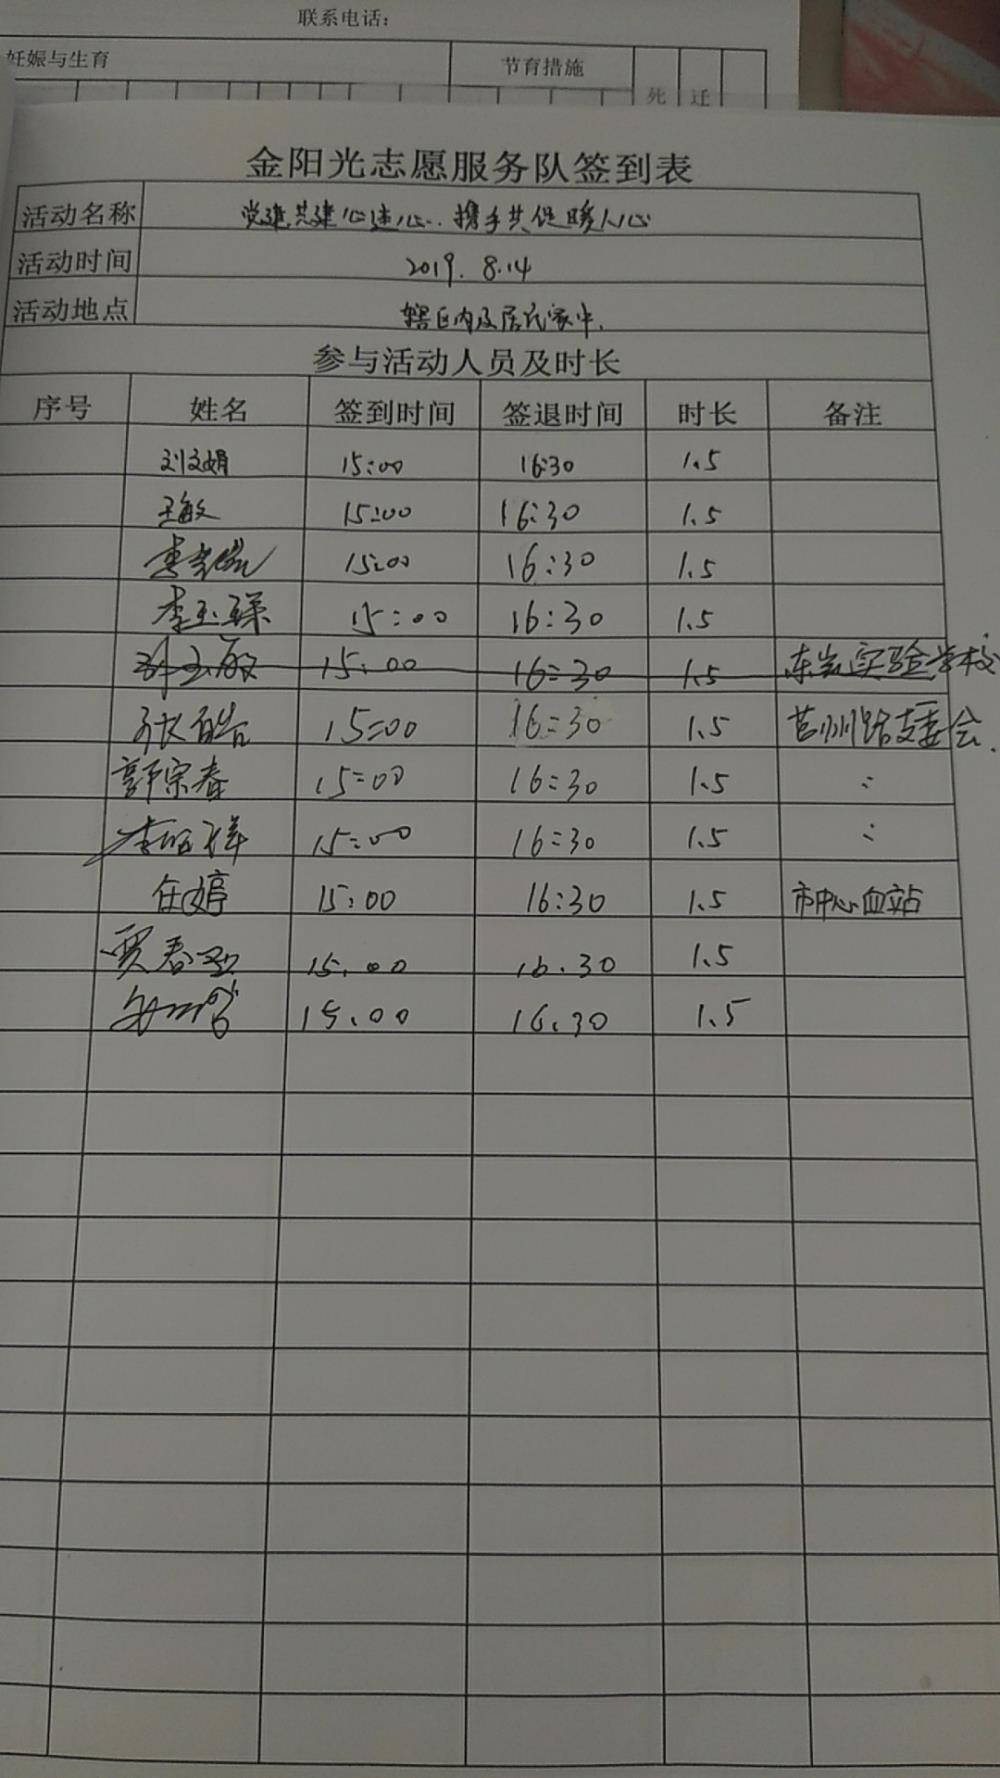 联系电话：
妊娠与生育 节育措施
死 迁
金阳光志愿服务队签到表
活动名称 党建共建心连心．携手共促暖人心
活动时间 2019. 8.14
活动地点 辖区内及居民家中.
参与活动人员及时长
序号 姓名 签到时间 签退时间 时长 备注
刘文娟 15:00 16:30 1.5
王敏 15:00 16:30 1.5
15:00 16:30 1.5
李玉琛 15:00 16:30 1.5
15:00 16:30 1.5 实验学校
15:00 16:30 1.5 莒州路支委会.
郭宗春 15:00 16:30 1.5 :
15:00 16:30 1.5 :
任婷 15:00 16:30 1.5 市中心血站
贾春 15.00 16.30 1.5
15.00 16.30 1.5